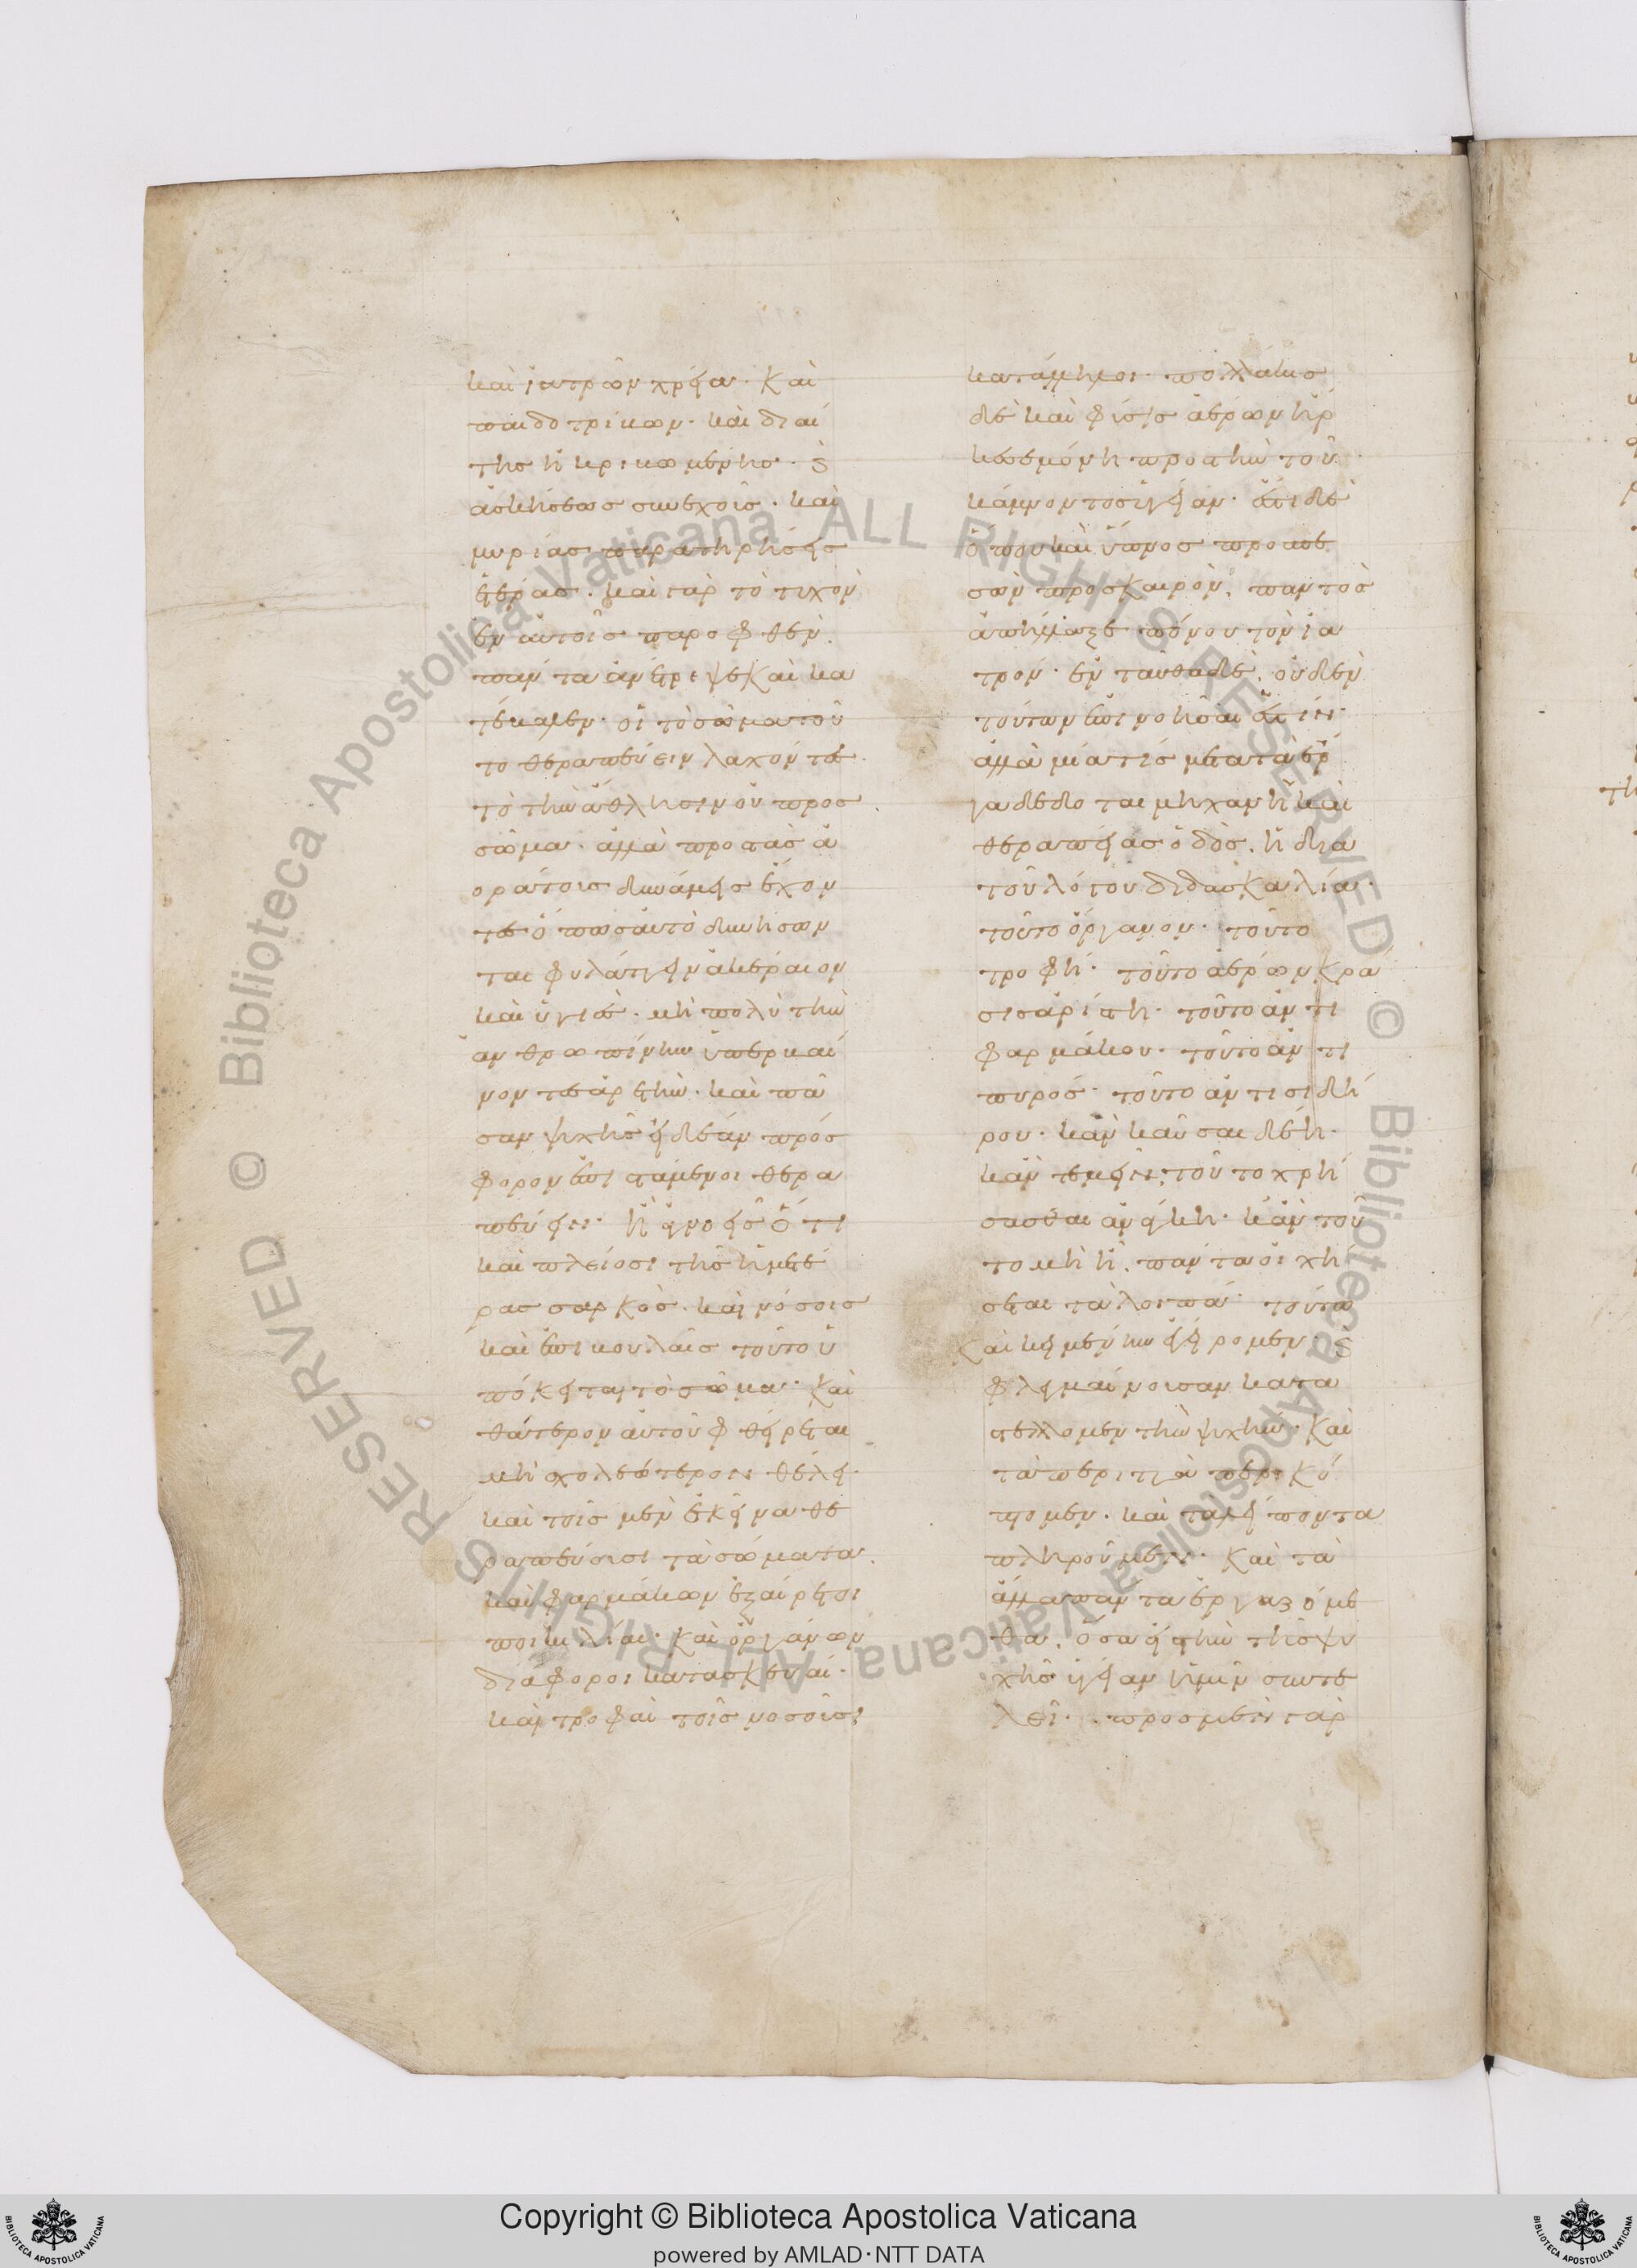 καὶ ἰατρῶν χρεία· καὶ
παιδοτρίβων· καὶ διαί
της ἠκριβωμένης· ϗ
ἀσκήσεως συνεχοῦς· καὶ
μυρίας παρατηρήσεως
ἑτέρας· καὶ γὰρ τὸ τυχὸν
ἐν αὐτοῖς παροφθὲν.
πάντα ἀνέτρεψε καὶ κα
τέβαλεν· οἱ τὸ σῶμα τοῦ
το θεραπεύειν λαχόντες.
τὸ τὴν ἄθλησιν οὐ πρὸς
σῶμα· ἀλλὰ πρὸς τὰς ἀ
οράτους δυνάμεις ἔχον
τες ὅπως αὐτὸ δυνήσον
ται φυλάττειν ἀκέραιον
καὶ ὑγιὲς· μὴ πολὺ τὴν
ἀνθρωπίνην ὑπερβαί
νοντες ἀρετὴν· καὶ πᾶ
σαν ψυχῆς ἰδέαν πρόσ
φορον ἐπιστάμενοι θερα
πεύειν· ἢ ἀγνοεῖς ὅτι
καὶ πλείοσι τῆς ἡμετέ
ρας σαρκὸς· καὶ νόσοις
καὶ ἐπιβουλαῖς τοῦτο ὑ
πόκειται τὸ σῶμα· καὶ
θάττερον αὐτοῦ φθείρεται
μὴ σχολεώτερον θέλει·
καὶ τοῖς μὲν ἐκεῖνα θε
ραπεύουσι τὰ σώματα.
καὶ φαρμάκων ἐξαίρεσι
ποικιλίαι· καὶ ὀργάνων
διάφοροι κατασκευαί·
καὶ τροφαὶ τοῖς νοσοῦσι
κατάλληλοι· πολλάκις
δὲ καὶ φύσις ἀέρων ἤρ
κεσε μόνη πρὸς τὴν τοῦ
κάμνοντος ὑγείαν· ἔστι δὲ
ὅπου καὶ ὕπνος προσπε
σὼν πρὸς καιρὸν, παντὸς
ἀπήλλαξε πόνου τὸν ἰα
τρόν· ἐνταῦθα δὲ, οὐδὲν
τούτων ἐπινοῆσαι ἔστιν·
ἀλλὰ μία τίς μετὰ τὰ ἔρ
γα δέδοται μηχανὴ καὶ
θεραπείας ὁδὸς, ἡ διὰ
τοῦ λόγου διδασκαλία·
τοῦτο ὄργανον· τοῦτο
τροφή· τοῦτο ἀέρων κρᾶ
σις ἀρίστη· τοῦτο ἀντὶ
φαρμάκου· τοῦτο ἀντὶ
πυρός· τοῦτο ἀντὶ σιδή
ρου· κἂν καῦσαι δέῃ·
κἂν τεμεῖν· τούτῳ χρή
σασθαι ἀνάγκη· κἂν τοῦ
το μὴ ᾖ, πάντα οἰχή
σεται τὰ λοιπά· τούτῳ
καὶ κειμένην ἐγείρομεν· ϗ
φλεγμαίνουσαν κατα
στέλλομεν τὴν ψυχήν· καὶ
τὰ περιττὰ περικό
πτομεν· καὶ τὰ λείποντα
πληροῦμεν· καὶ τὰ
ἄλλα πάντα ἐργαζόμε
θα, ὅσα εἰς τὴν τῆς ψυ
χῆς ὑγείαν ἡμῖν συντε
λεῖ· πρὸς μὲν γὰρ